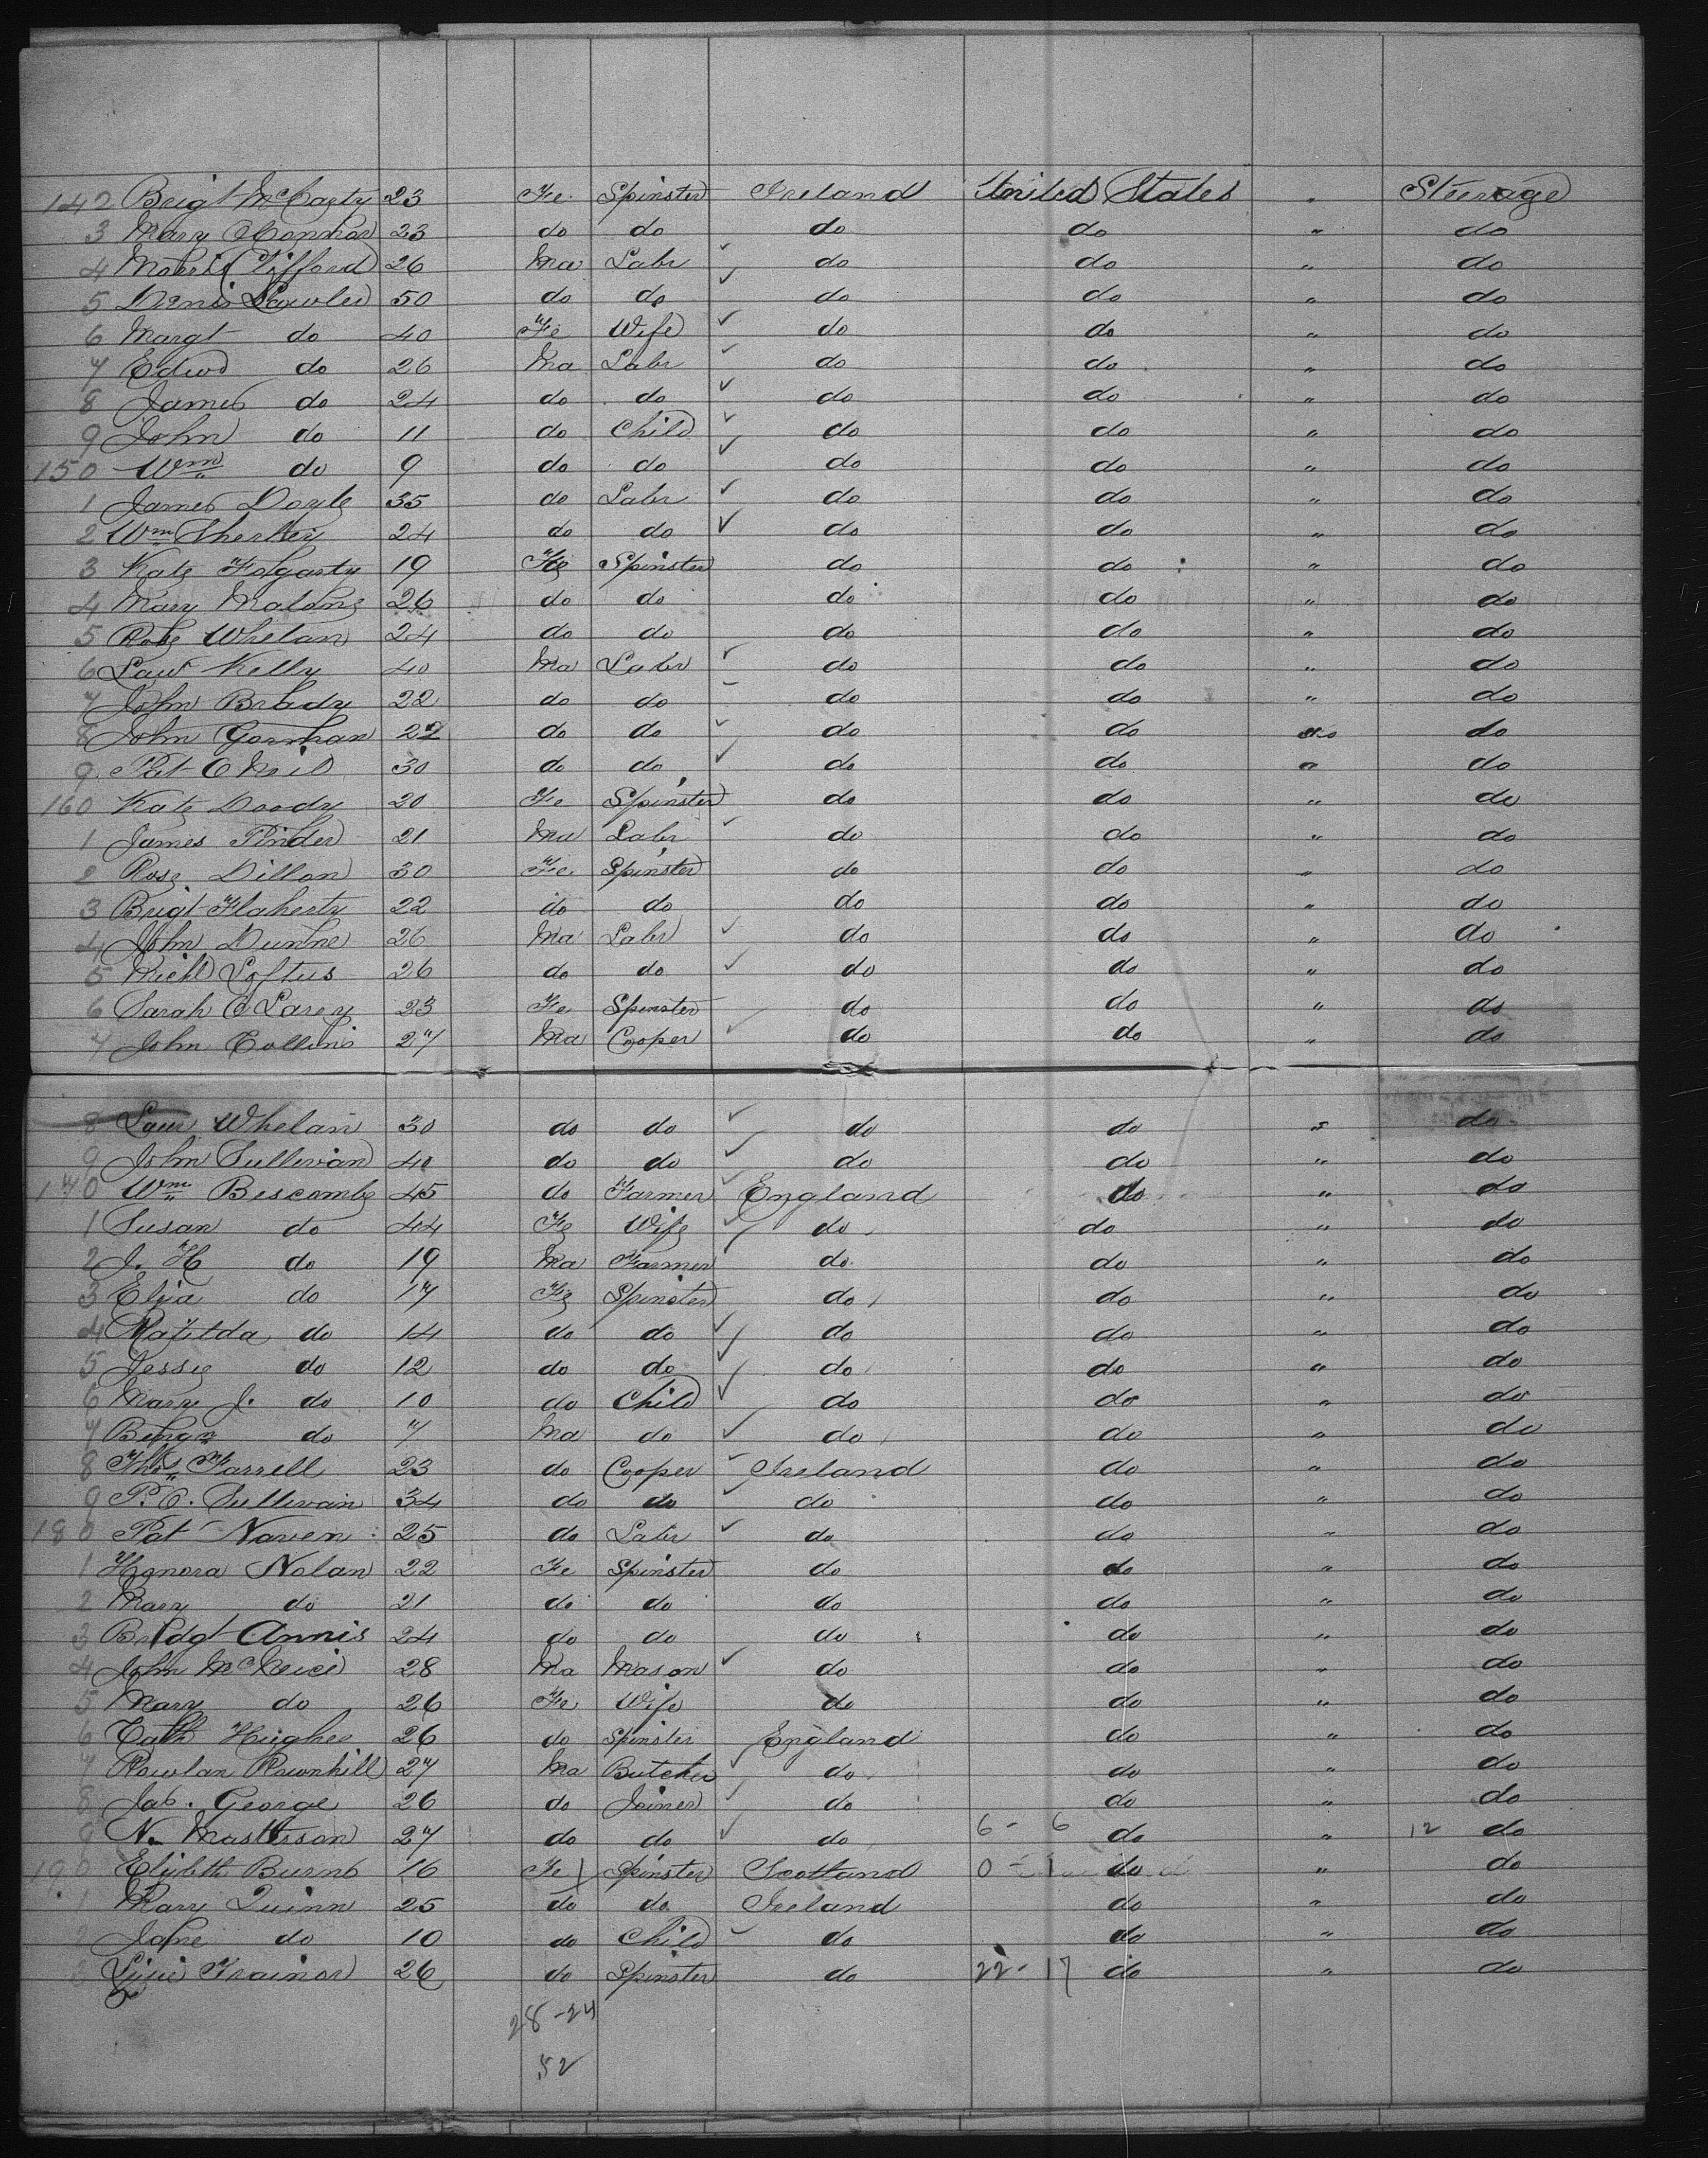 142 Brigt McCarty 23 Fe. Spinster Ireland United States " Steerage
3 Mary OConnor 23 do do do do " do
4 Morris Clifford 26 Ma Labr do do " do
5 Denis Lawler 50 do do do do " do
6 Margt do 40 Fe Wife do do " do
7 Edwd do 26 Ma Labr do do " do
8 James do 24 do do do do " do
9 John do 11 do Child do do " do
150 Wm do 9 do do do do " do
1 James Doyle 35 do Labr do do " do
2 Wm 24 do do do do " do
3 Kate Fogarty 19 Fe Spinster do do " do
4 Mary Malone 26 do do do do " do
5 Rose Whelan 24 do do do do " do
6 Law Kelly 40 Ma Labr do do " do
7 John Brady 22 do do do do " do
8 John Gorman 22 do do do do do
9 Pat O Neil 30 do do do do " do
160 Kate Doody 20 Fe Spinster do do " do
1 James Pinder 21 Ma Labr do do " do
2 Rose Dillon 30 Fe. Spinster do do " do
3 Brigt Flaherty 22 do do do do " do
4 John Dunne 26 Ma Labr do do " do
5 Michl Loftus 26 do do do do " do
6 Sarah O Larey 23 Fe Spinster do do " do
7 John Collins 27 Ma Cooper do do " do
8 Law Whelan 30 do do do do " do
9 John Sullivan 40 do do do do " do
170 Wm Bescombe 45 do Farmer England do " do
1 Susan do 44 Fe Wife do do " do
2 J. H do 19 Ma Farmer do do " do
3 Eliza do 17 Fe Spinster do do " do
4 Matilda do 14 do do do do " do
5 Jessie do 12 do do do do " do
6 Mary J. do 10 do Child do do " do
7 Benjn do 7 Ma do do do " do
8 Thos Farrell 23 do Cooper Ireland do " do
9 P. O. Sullivan 34 do do do do " do
180 Pat Naven 25 do Labr do do " do
1 Honora Nolan 22 Fe Spinster do do " do
2 Mary do 21 do do do do " do
3 Bridgt Annis 24 do do do do " do
4 John McNeice 28 Ma Mason do do " do
5 Mary do 26 Fe Wife do do " do
6 Cath Hughes 26 do Spinster England do " do
7 Rowlan Rownhill 27 Ma Butcher do do " do
8 Jas. George 26 do Joiner do do " do
9 N. Masterson 27 do do do 6 - 6 do " 12 do
190 Elizbth Burns 16 Fe Spinster Scotland 0 - 1 do " do
1 Mary Quinn 25 do do Ireland do " do
2 Jane do 10 do Child do do " do
3 Lizzie Trainor 26 do Spinster do 22 - 17 do " do
28 - 24
52